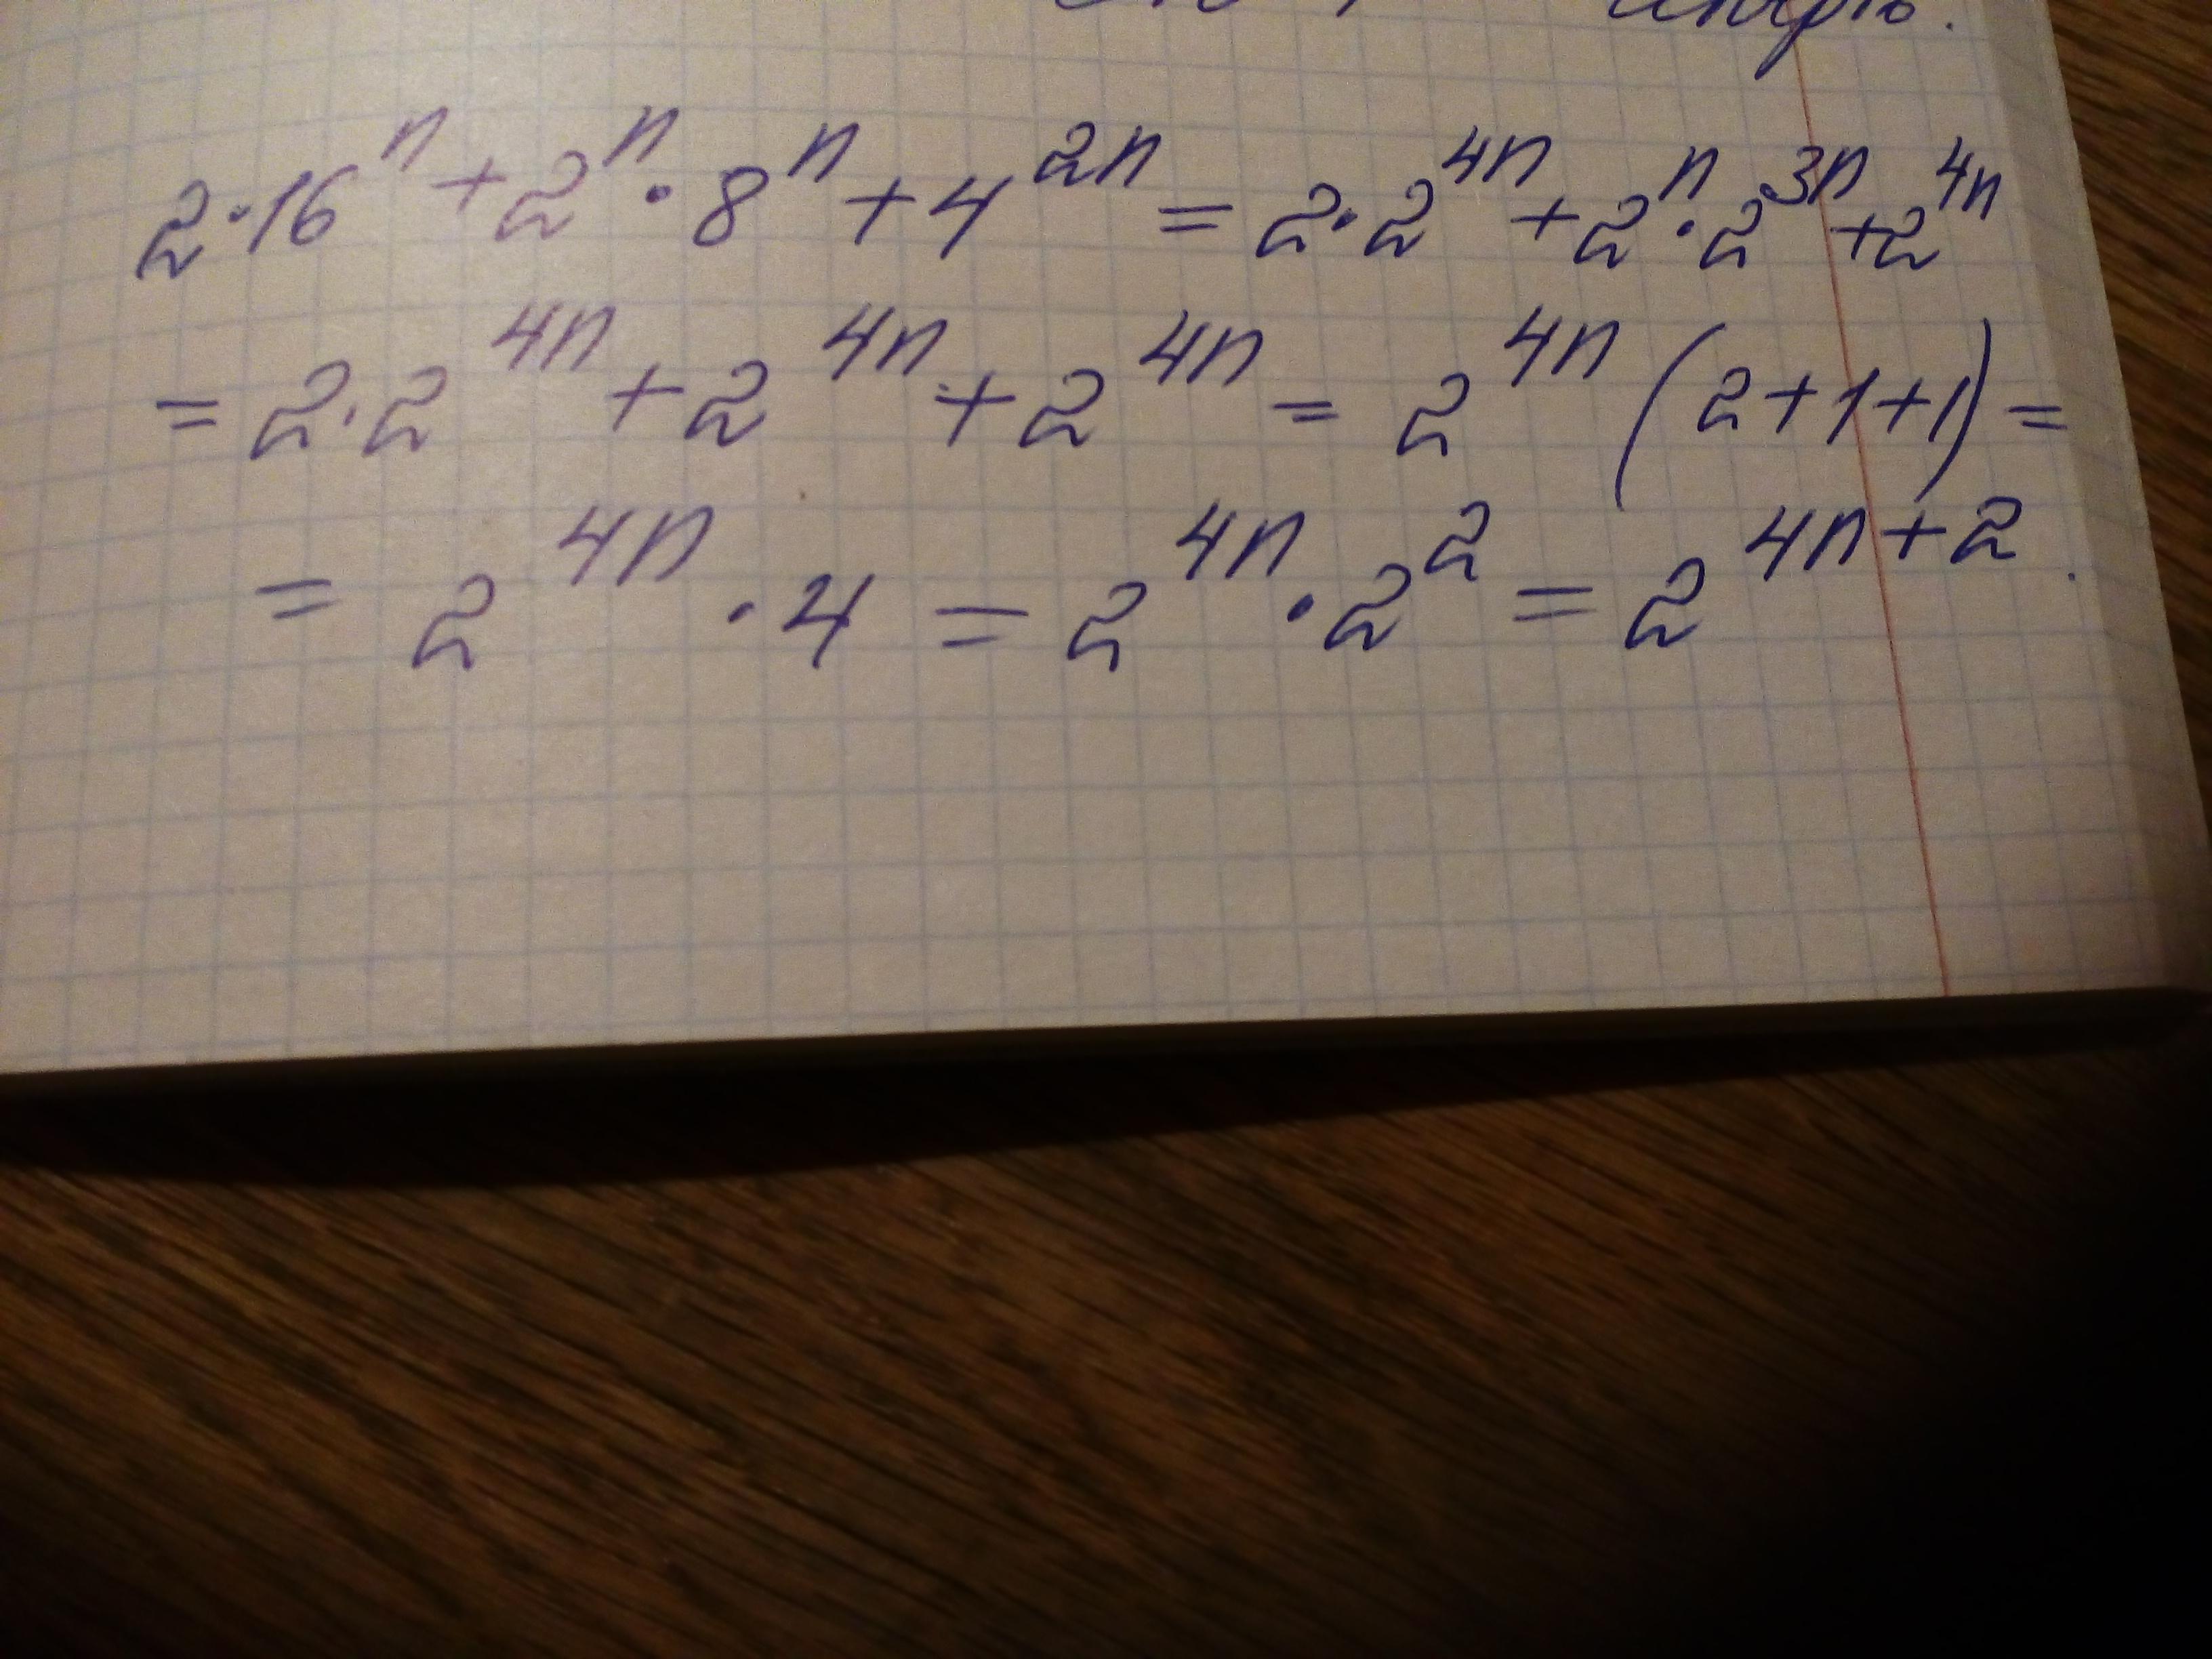 2·16ⁿ+2ⁿ·8ⁿ+4²ⁿ=2·2⁴ⁿ+2ⁿ·2³ⁿ+2⁴ⁿ
=2·2⁴ⁿ+2⁴ⁿ+2⁴ⁿ=2⁴ⁿ(2+1+1)=
=2⁴ⁿ·4=2⁴ⁿ·2²=2⁴ⁿ⁺².